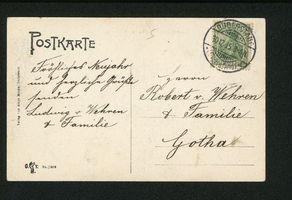 POSTKARTE
Fröhliches Neujahr
und herzliche Grüße
senden
Ludwig v. Wehren
& Familie
Herrn
Robert v. Wehren
& Familie
Gotha